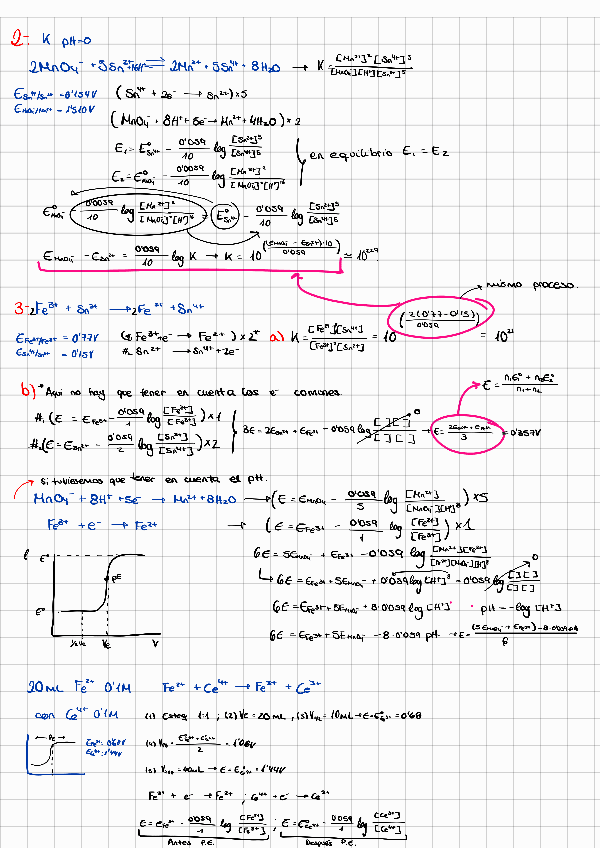 2- K pH=0
2MnO4⁻ + 5Sn²⁺ + 16H⁺ ⇌ 2Mn²⁺ + 5Sn⁴⁺ + 8H2O → K = [Mn²⁺]² [Sn⁴⁺]⁵ / [MnO4⁻]²[H⁺]¹⁶[Sn²⁺]⁵
ESn⁴⁺/Sn²⁺ = 0'154V (Sn⁴⁺ + 2e⁻ → Sn²⁺)×5
EMnO4⁻/Mn²⁺ = 1'510V
(MnO4⁻ + 8H⁺ + 5e⁻ → Mn²⁺ + 4H2O) × 2
E1 = E°Sn⁴⁺ - 0'059/10 log [Sn²⁺]⁵/[Sn⁴⁺]⁵
en equilibrio E1 = E2
E2 = E°MnO4⁻ - 0'0059/10 log [Mn²⁺]²/[MnO4⁻]²[H⁺]¹⁶
E°MnO4⁻ - 0'0059/10 log [Mn²⁺]²/[MnO4⁻]²[H⁺]¹⁶ = E°Sn⁴⁺ - 0'059/10 log [Sn²⁺]⁵/[Sn⁴⁺]⁵
EMnO4⁻ - ESn⁴⁺ = 0'059/10 log K → K = 10^((EMnO4⁻ - ESn⁴⁺)·10/0'059) ≃ 10²²⁹
mismo proceso.
3- 2Fe³⁺ + Sn²⁺ → 2Fe²⁺ + Sn⁴⁺
EFe³⁺/Fe²⁺ = 0'77V (Fe³⁺ + e⁻ → Fe²⁺) × 2 a) K = [Fe²⁺]²[Sn⁴⁺]/[Fe³⁺]²[Sn²⁺] = 10^(2(0'77-0'15)/0'059) = 10²¹
ESn⁴⁺/Sn²⁺ = 0'15V #2 Sn²⁺ → Sn⁴⁺ + 2e⁻
b) * Aquí no hay que tener en cuenta los e⁻ comunes.
E = n1E1° + n2E2° / n1 + n2
#1 (E = EFe³⁺ - 0'059/1 log [Fe²⁺]/[Fe³⁺]) × 1
3E = 2ESn⁴⁺ + EFe³⁺ - 0'059 log [ ][ ]/[ ][ ] 0 → E = 2ESn⁴⁺ + EFe³⁺/3 = 0'357V
#2 (E = ESn⁴⁺ - 0'059/2 log [Sn²⁺]/[Sn⁴⁺]) × 2
Si tubiesemos que tener en cuenta el pH.
MnO4⁻ + 8H⁺ + 5e⁻ → Mn²⁺ + 8H2O → (E = EMnO4⁻ - 0'059/5 log [Mn²⁺]/[MnO4⁻][H⁺]⁸) × 5
Fe³⁺ + e⁻ → Fe²⁺ → (E = EFe³⁺ - 0'059/1 log [Fe²⁺]/[Fe³⁺]) × 1
6E = 5EMnO4⁻ + EFe³⁺ - 0'059 log [Mn²⁺][Fe²⁺]/[MnO4⁻][H⁺]⁸
6E = EFe³⁺ + 5EMnO4⁻ + 0'059 log [H⁺]⁸ - 0'059 log [ ][ ]/[ ][ ] 0
6E = EFe³⁺ + 5EMnO4⁻ + 8·0'059 log [H⁺] · pH = -log [H⁺]
6E = EFe³⁺ + 5EMnO4⁻ - 8·0'059 pH → E = (5EMnO4⁻ + EFe³⁺) - 8·0'059 pH / 6
E°
PE
E°
½Ve Ve V
20mL Fe²⁺ 0'1M Fe²⁺ + Ce⁴⁺ → Fe³⁺ + Ce³⁺
con Ce⁴⁺ 0'1M (1) Esteq 1:1 ; (2) Ve = 20mL ; (3) V½ = 10mL → E = E° = 0'68
PE EFe³⁺ = 0'68V (4) = /2 = 1'06V
ECe⁴⁺ = 1'44V
(5) = 40mL → E = E°Ce⁴⁺ = 1'44V
Fe³⁺ + e⁻ → Fe²⁺ ; Ce⁴⁺ + e⁻ → Ce³⁺
E = EFe³⁺ - 0'059/1 log [Fe²⁺]/[Fe³⁺] ; E = ECe⁴⁺ - 0'059/1 log [Ce³⁺]/[Ce⁴⁺]
Antes P.E. Después P.E.